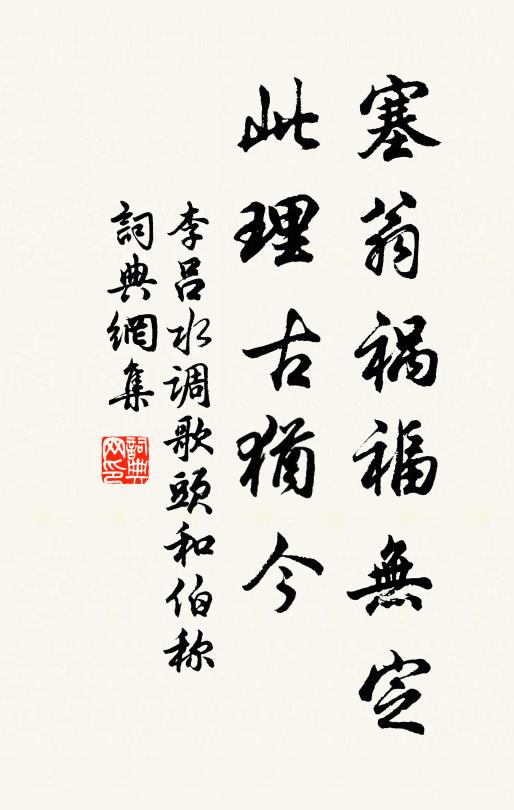 塞翁祸福無定
此理古猶今
李吕水调歌頭和伯称
詞典網集
詞典网印